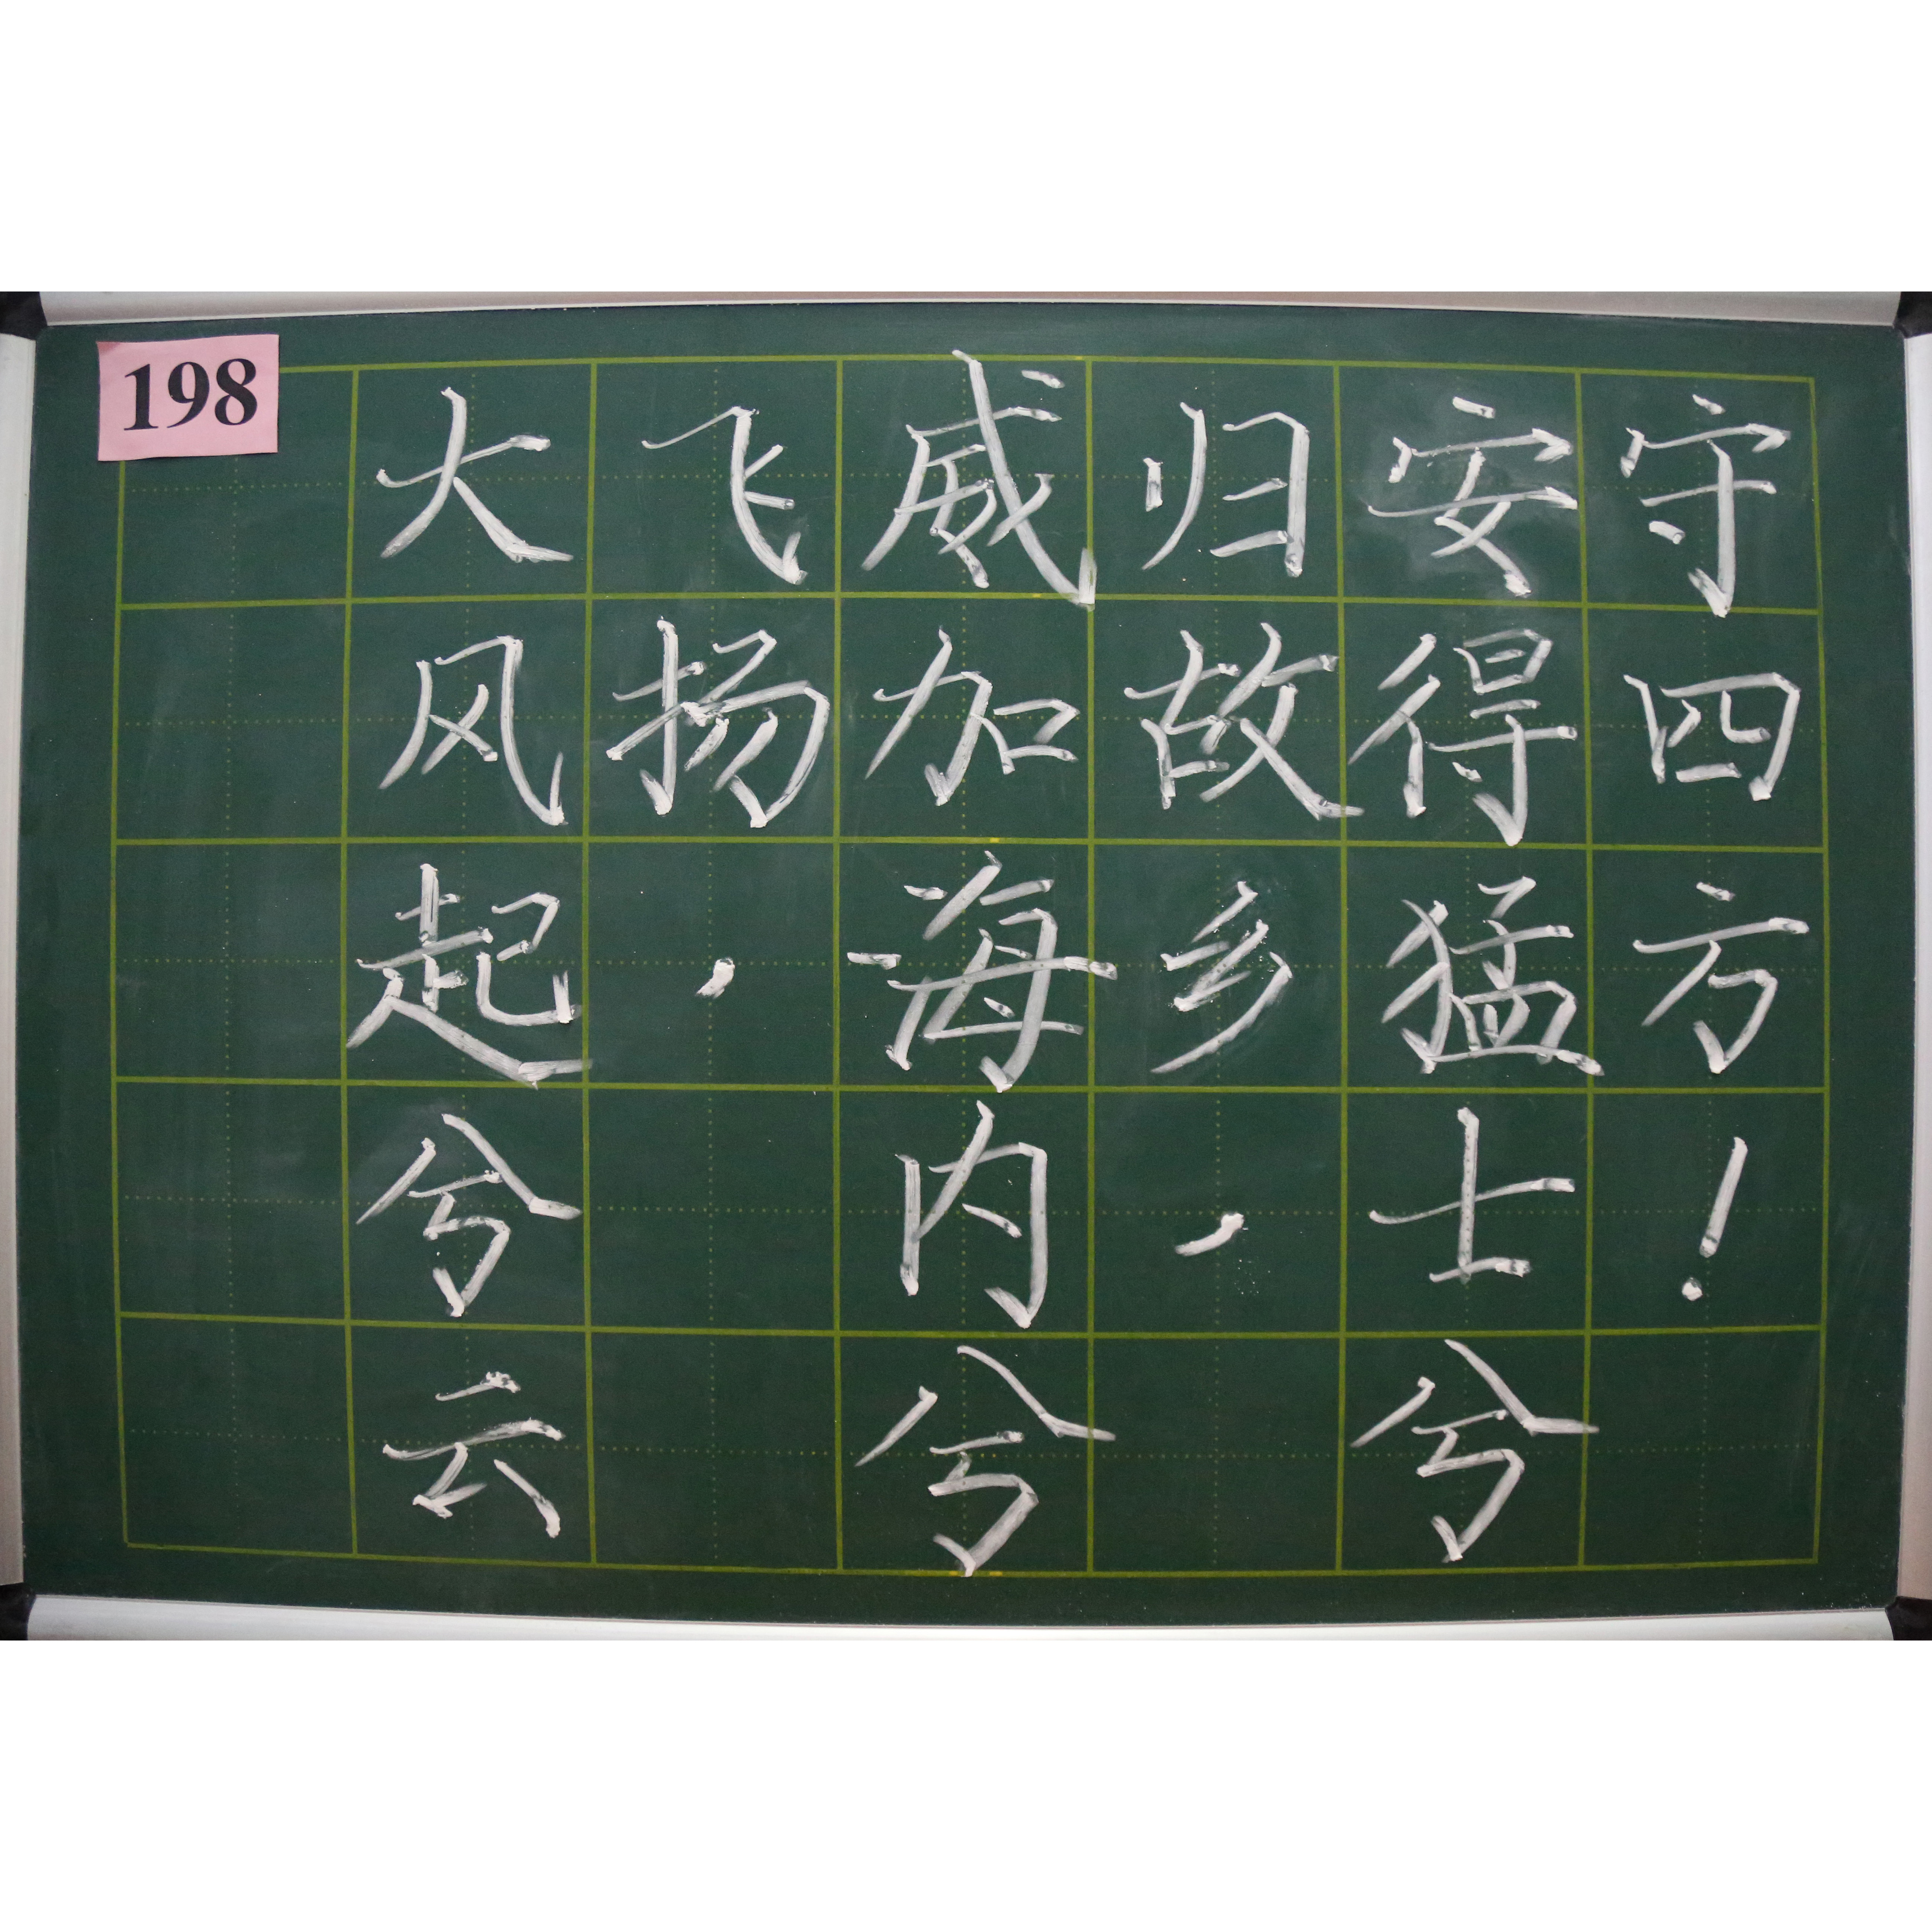 198
大风起兮云
飞扬，
威加海内兮
归故乡，
安得猛士兮
守四方！